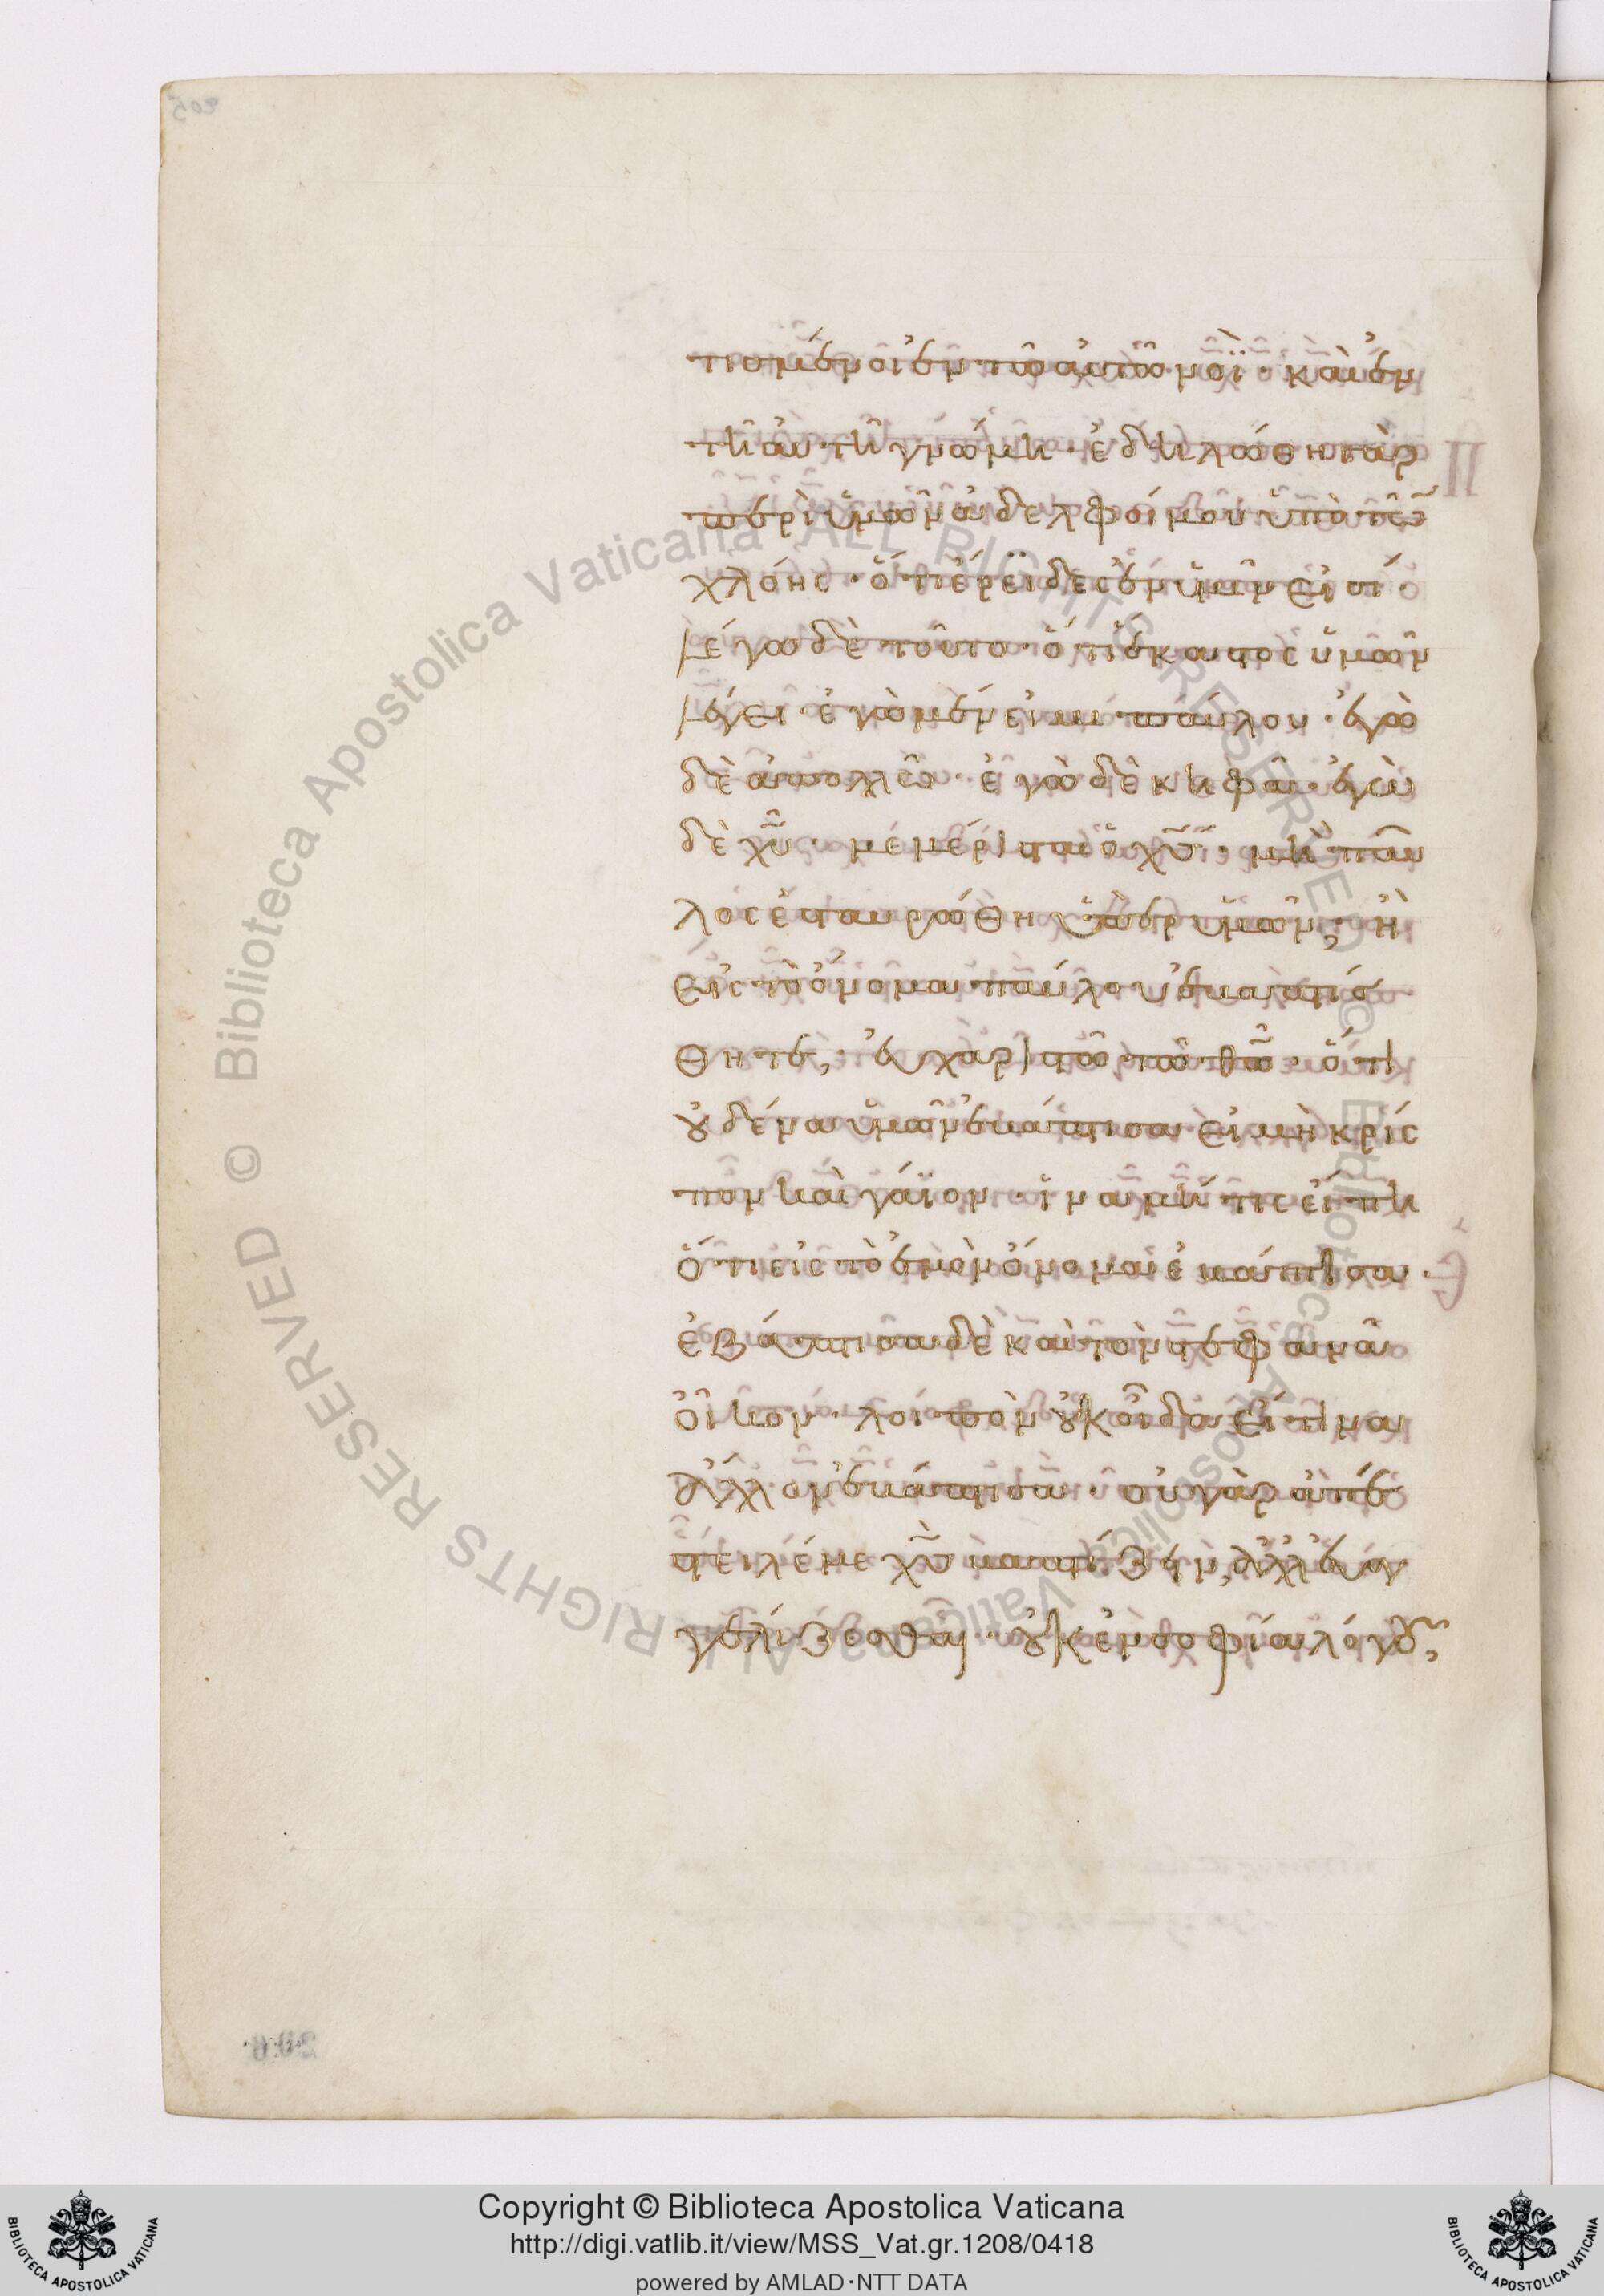 τισμένοι ἐν τῶ αὐτῶ νοῒ· καὶ ἐν
τῆ αὐτῆ γνώμη· ἐδηλώθη γὰρ
περὶ ὑμῶν ἀδελφοί μου ὑπὸ τῶ
χλόης· ὅτι ἔρϊδες ἐν ὑμῖν εἰσί·
λέγω δὲ τοῦτο· ὅτι ἕκαστος ὑμῶν
λέγει· ἐγὼ μέν εἰμι παύλου· ἐγὼ
δὲ ἀπολλῶ· ἐγὼ δὲ κηφᾶ· ἐγὼ
δὲ χυ· μεμέρισται ὁ χς· μὴ παῦ
λος ἐσταυρώθη ὑπὲρ ὑμῶν; ἢ
εἰς τὸ ὄνομα παύλου ἐβαπτίσ
θητε; εὐχαριστῶ τῶ θω· ὅτι
οὐδένα ὑμῶν ἐβάπτισα εἰ μὴ κρίσ
πον καὶ γάϊον· ἵνα μή τις εἴπη
ὅτι εἰς τὸ ἐμὸν ὄνομα ἐβάπτισα·
ἐβάπτισα δὲ καὶ τὸν στεφανᾶ
οἶκον· λοιπὸν οὐκ οἶδα εἴ τινα
ἄλλον ἐβάπτισα· οὐ γὰρ ἀπέ
στειλέ με χς βαπτίζειν, ἀλλ' εὐαγ
γελίζεσθαι· οὐκ ἐν σοφία λόγου,
Copyright © Biblioteca Apostolica Vaticana
http://digi.vatlib.it/view/MSS_Vat.gr.1208/0418
powered by AMLAD·NTT DATA